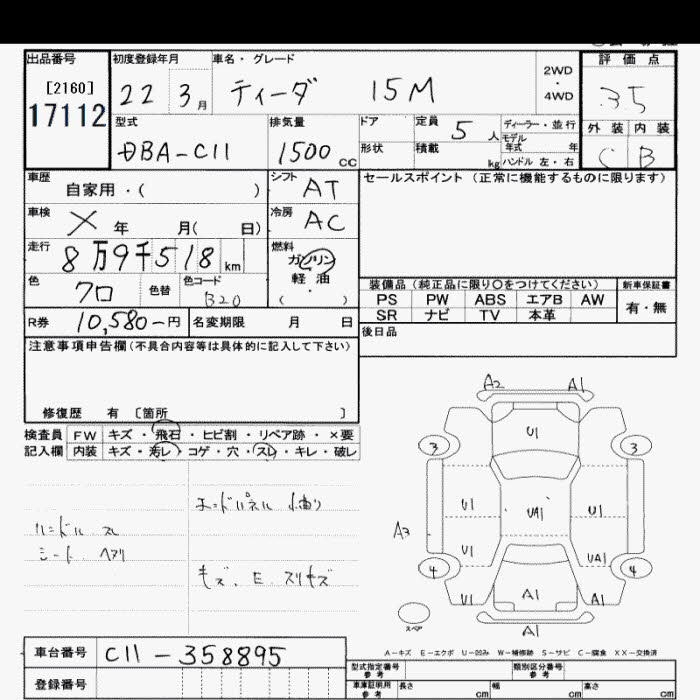 出品番号 初度登録年月 車名・グレード 評価点
[2160] 22 3月 ティーダ 15M 2WD・4WD 35
17112
型式 排気量 ドア 定員 5人 ディーラー・並行 外装 内装
DBA-C11 1500cc 形状 積載 kg モデル年式 年 ハンドル 左・右 C B
車歴 自家用・( ) シフト AT セールスポイント(正常に機能するものに限ります)
車検 X 年 月( 日) 冷房 AC
走行 8万9千518km 燃料 ガソリン
軽油
( )
色 クロ 色替 色コード B20
装備品(純正品に限り○をつけてください) 新車保証書
PS PW ABS エアB AW 有・無
SR ナビ TV 本革
R券 10,580-円 名変期限 月 日 後日品
注意事項申告欄(不具合内容等は具体的に記入して下さい)
修復歴 有 〔箇所 〕
検査員 FW キズ・飛石・ヒビ割・リペア跡・×要
記入欄 内装 キズ・汚レ・コゲ・穴・スレ・キレ・破レ
エンドパネル 曲り
ハンドル スレ
シート ヘタリ
キズ、E、スリキズ
A2 A1
U1
3 3
U1 UA1 U1
A3
U1 UA1
4 4
U1 A1 A1
スペア A1
A-キズ E-エクボ U-凹み W-補修跡 S-サビ C-腐食 XX-交換済
車台番号 C11-358895
型式指定番号 参考 類別区分番号 参考
登録番号 車庫証明用 参考 長さ cm 幅 cm 高さ cm